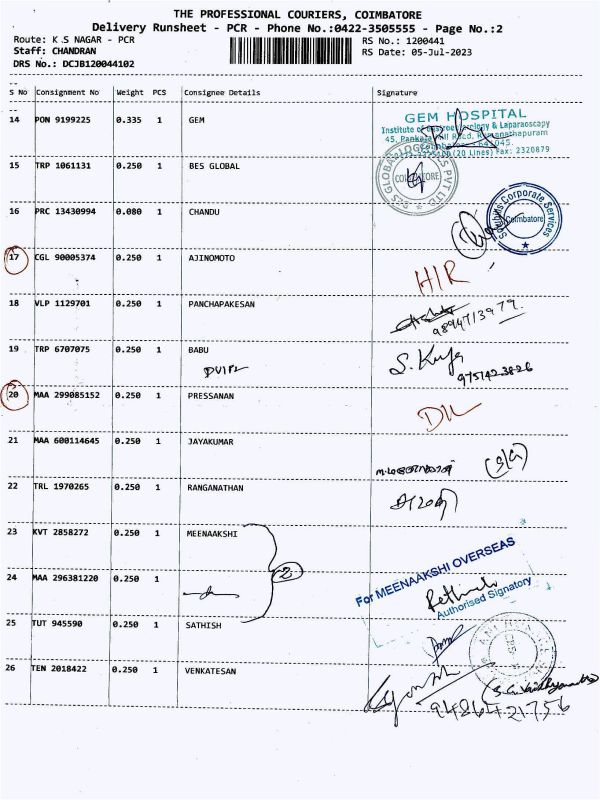 THE PROFESSIONAL COURIERS, COIMBATORE
Delivery Runsheet - PCR - Phone No.:0422-3505555 - Page No.:2
Route: K.S NAGAR - PCR RS No.: 1200441
Staff: CHANDRAN RS Date: 05-Jul-2023
DRS No.: DCJB120044102
S No Consignment No Weight PCS Consignee Details Signature
14 PON 9199225 0.335 1 GEM
GEM HOSPITAL
Institute of Gastroenterology & Laparaoscapy
45, Pankaja Mill Road, Ramanathapuram
Coimbatore - 641045.
(20 Lines) Fax: 2320879
15 TRP 1061131 0.250 1 BES GLOBAL
BES GLOBAL LOGISTICS PVT LTD.
COIMBATORE
16 PRC 13430994 0.080 1 CHANDU
Corporate Services
Coimbatore
17 CGL 90005374 0.250 1 AJINOMOTO
H/R
18 VLP 1129701 0.250 1 PANCHAPAKESAN
9894713979
19 TRP 6707075 0.250 1 BABU
DVIPL
S.
20 MAA 299085152 0.250 1 PRESSANAN
D/L
21 MAA 600114645 0.250 1 JAYAKUMAR
22 TRL 1970265 0.250 1 RANGANATHAN
23 KVT 2858272 0.250 1 MEENAAKSHI
2
24 MAA 296381220 0.250 1
For MEENAAKSHI OVERSEAS
Authorised Signatory
25 TUT 945590 0.250 1 SATHISH
26 TEN 2018422 0.250 1 VENKATESAN
9486421756